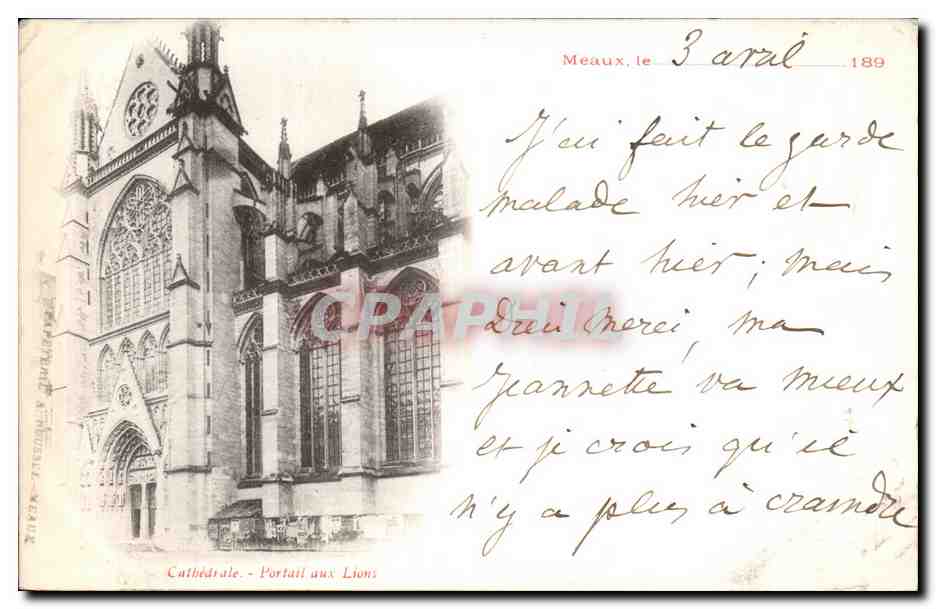 Meaux, le 3 avril 189
J'ai fait le garde
malade hier et
avant hier; mais
Dieu merci, ma
Jeannette va mieux
et je crois qu'il
n'y a plus à craindre
CPARAMA
Cathédrale. - Portail aux Lions